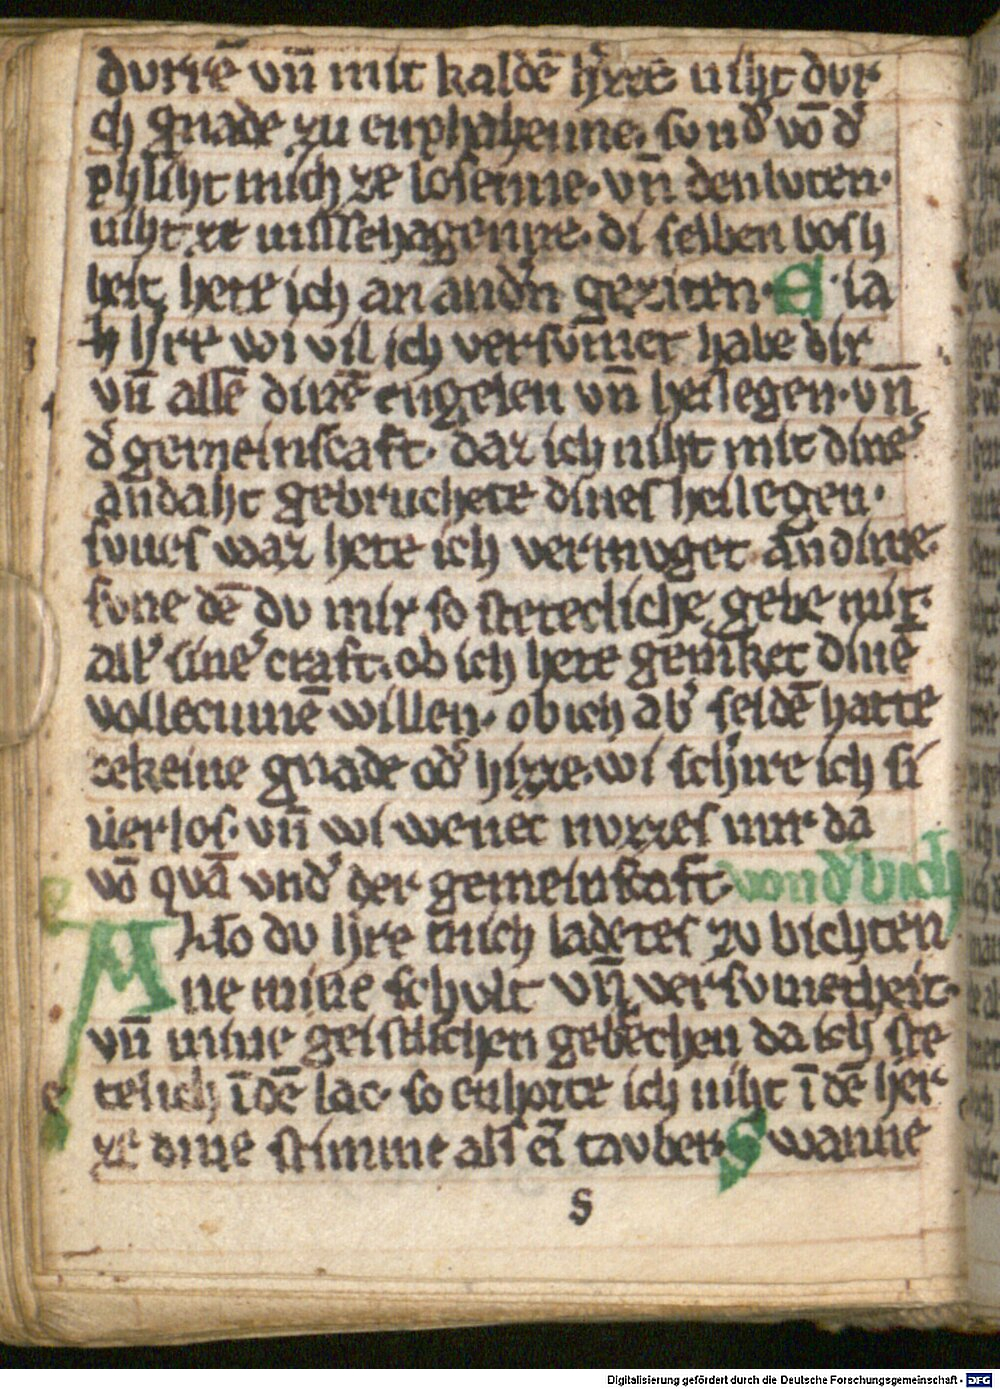 durrē vn̄ mit kaldē h̾zzē niht dur
ch gnade zu enphahenne. sund̾ vō d̾
phliht mich ze losenne. vn̄ den luten.
niht ze missehagenne. di selben bosh
heit hete ich an and̾n geziten. E ia
h h̾re wi vil ich versumet habe dir
vn̄ allē dinē engelen vn̄ heilegen. vn̄
d̾ gemeinscaft. daz ich niht mit dine̾
andaht gebruchete dines heilegen.
sunes waz hete ich vermuget an dime.
sune dē du mir so stetecliche gebe mit.
all̾ sine̾ craft. ob ich hete gemīket dinē
vollecumē willen. ob ich ab̾ seldē hatte
dekeine gnade od̾ hizze. wi schire ich si
uerlos. vn̄ wi wenec nuzzes mir da
vō quā vnd̾ der gemeinscaft. von d̾ bich
Also du h̾re mich ladetes zu bichten
ne mine schult vn̄ versumetheit.
vn̄ mine geistlichen gebrechen da ich ste
telich ī dē lac. so enhorte ich niht ī dē her
ze dine stimme als eī tauber. Swanne
s
Digitalisierung gefördert durch die Deutsche Forschungsgemeinschaft - DFG